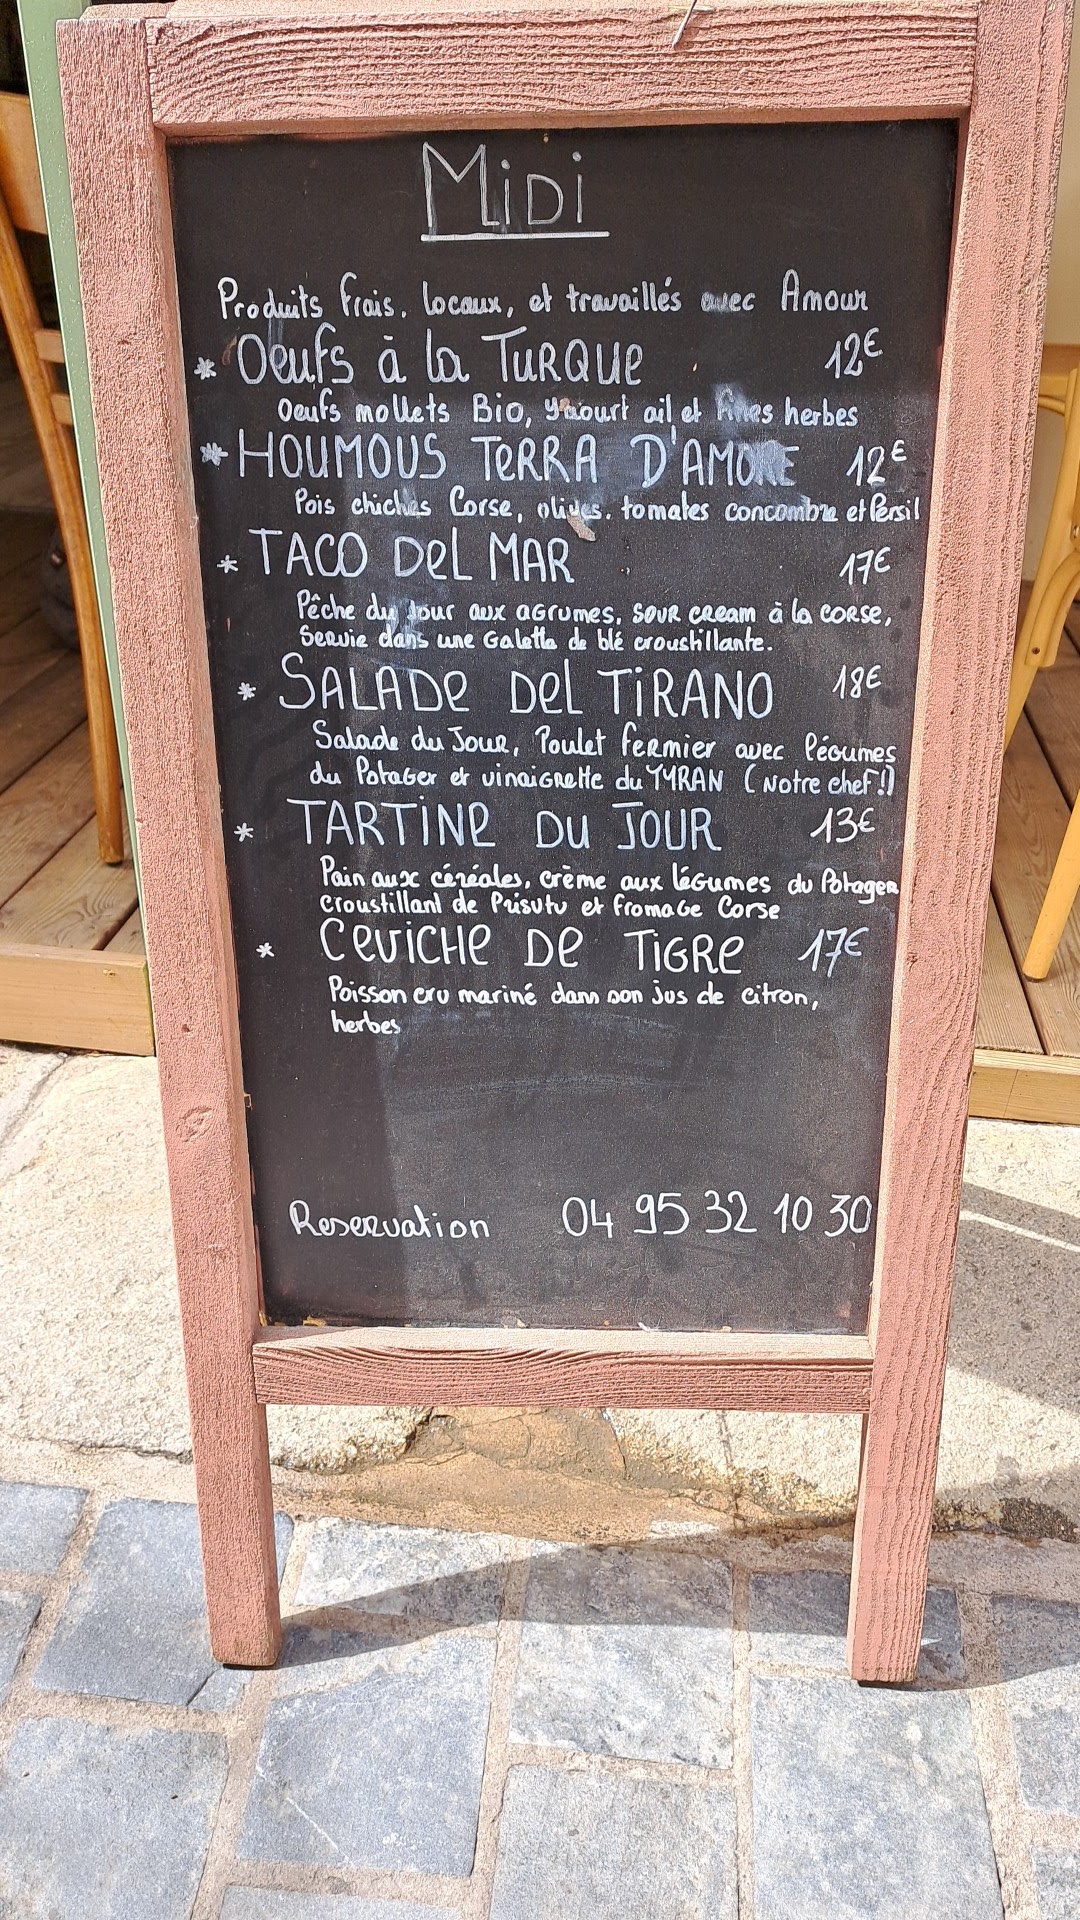 MiDi
Produits frais, locaux, et travaillés avec Amour
* Oeufs à la TURQUE 12€
Oeufs mollets Bio, yaourt ail et fines herbes
* HOUMOUS TERRA D'AMORE 12€
Pois chiches Corse, olives, tomates concombre et Persil
* TACO DEL MAR 17€
Pêche du Jour aux agrumes, sour cream à la corse,
Servie dans une Galette de blé croustillante.
* SALADE DEL TiRANO 18€
Salade du Jour, Poulet fermier avec légumes
du Potager et vinaigrette du TYRAN (Notre chef!)
* TARTINE DU JOUR 13€
Pain aux céréales, crème aux légumes du Potager
croustillant de Prisutu et fromage Corse
* CEVICHE DE TIGRE 17€
Poisson cru mariné dans son jus de citron,
herbes
Reservation 04 95 32 10 30